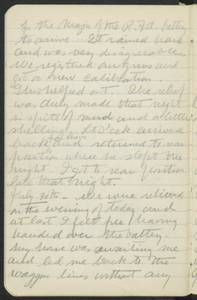 to the Major of the R.F.A. battery
to arrive. It rained hard
and was very disagreeable.
We registered our guns and
got a new calibration.
I helped out. The relief
was duly made that night
in spite of wind and a little
shelling. I arrived
back and returned to our
position where we slept the
night. I got to rear position
late that night.
July 30th - We were relieved
on the evening of today and
at last I feel free having
handed over the battery.
My horse was awaiting me
and led me back to the
waggon lines without any